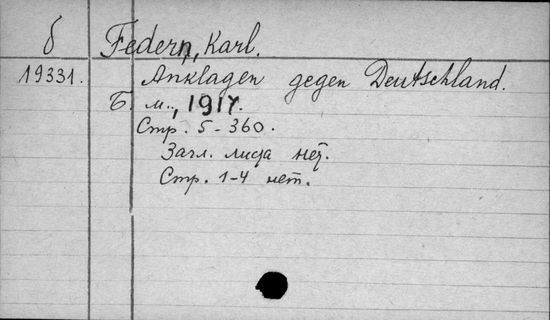 б Federn, Karl.
19331. Anklagen gegen Deutschland.
Б. м., 1917.
Стр. 5-360.
Загл. листа нет.
Стр. 1-4 нет.